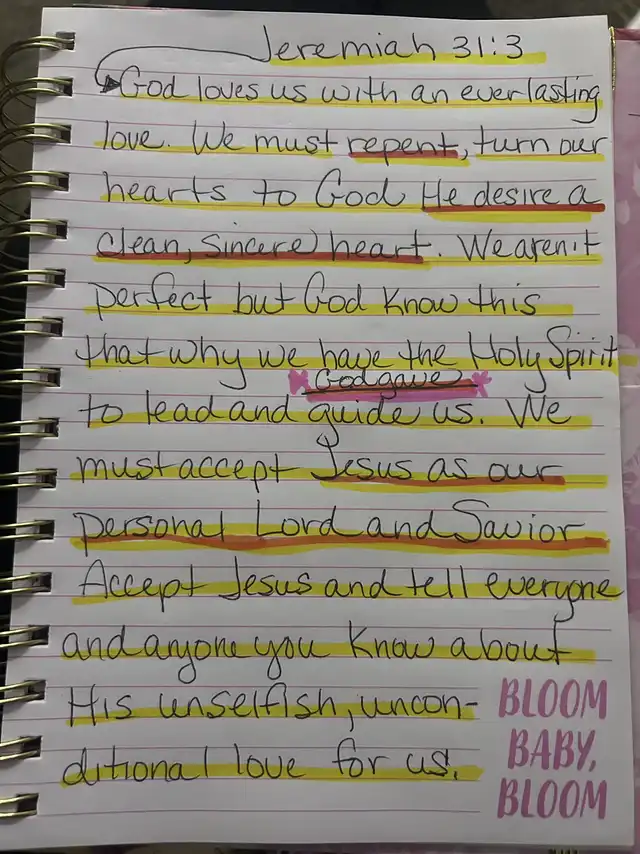 Jeremiah 31:3
God loves us with an everlasting
love. We must repent, turn our
hearts to God He desire a
clean, sincere heart. We aren't
perfect but God know this
that why we have the Holy Spirit
God gave
to lead and guide us. We
must accept Jesus as our
personal Lord and Savior
Accept Jesus and tell everyone
and anyone you know about
His unselfish, uncon-
ditional love for us.
BLOOM
BABY,
BLOOM